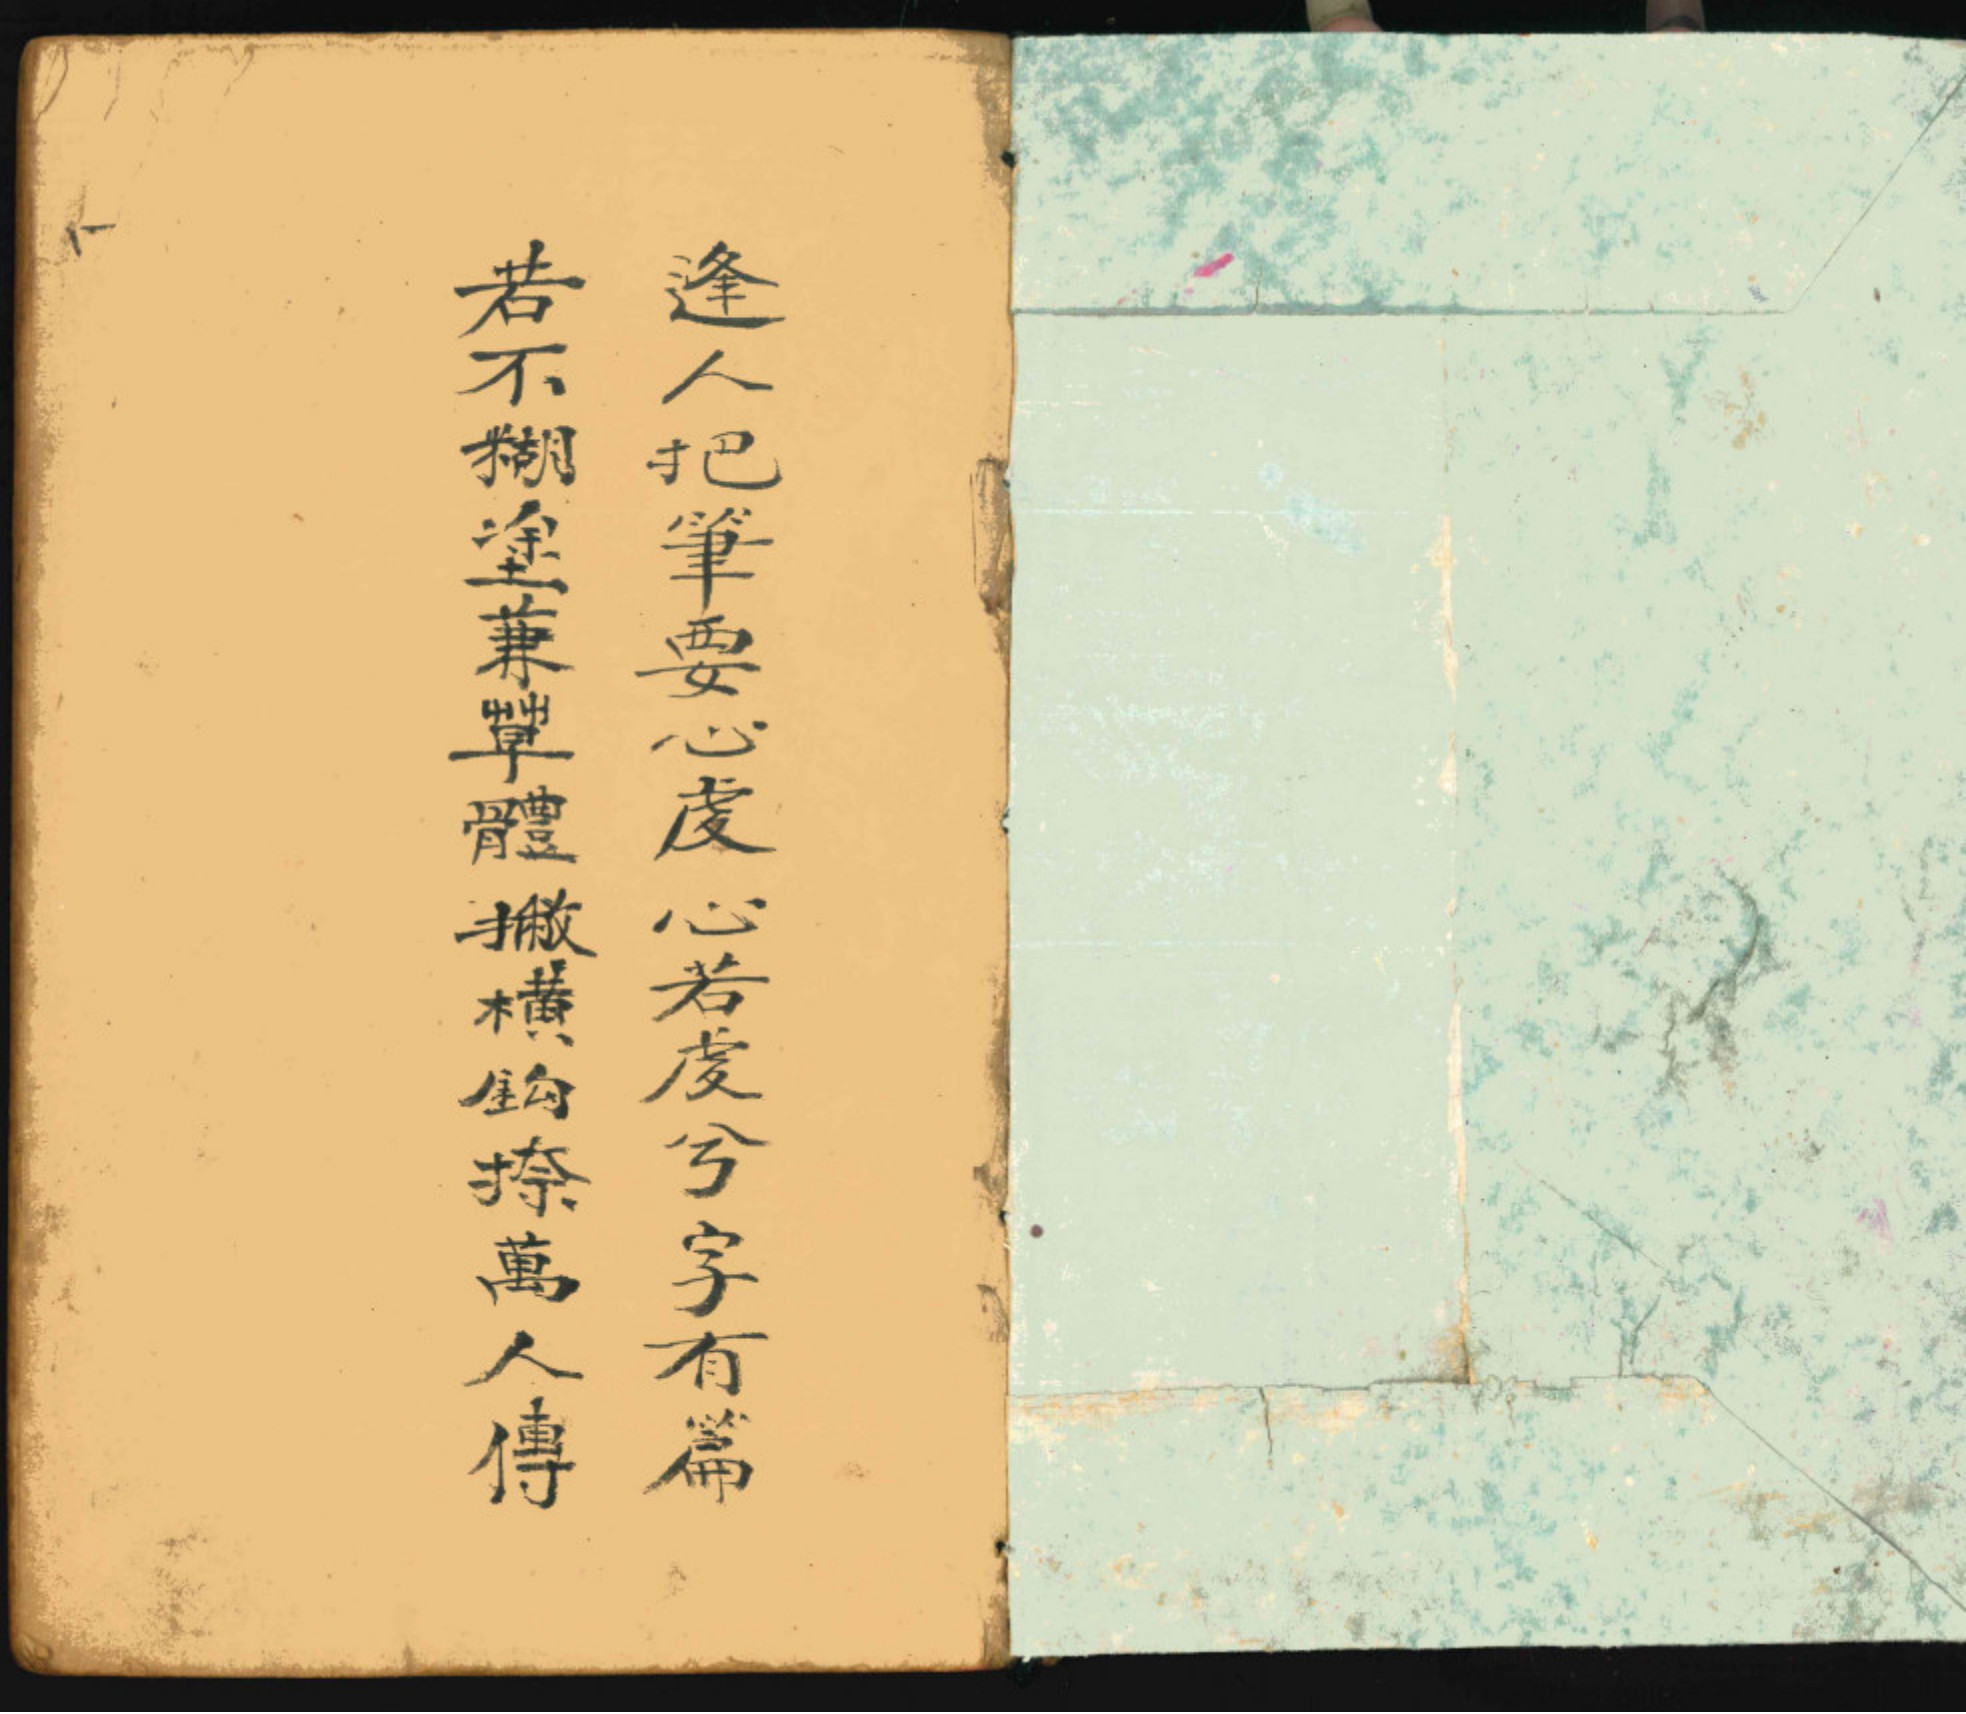 逢人把筆要心虔心若虔兮字有篇
若不糊塗兼草體撇橫鈎捺萬人傳